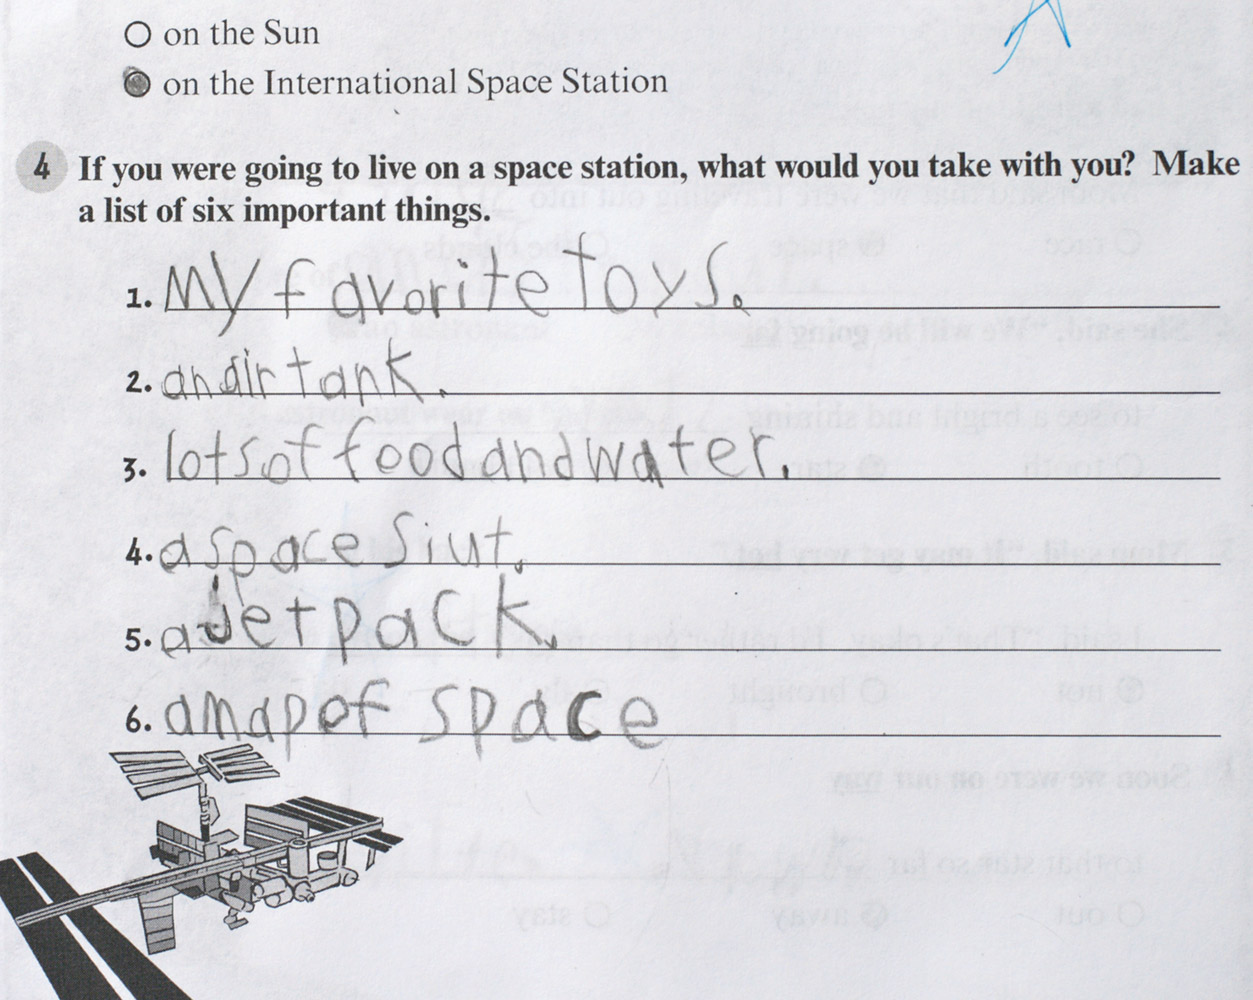 on the Sun
on the International Space Station
4 If you were going to live on a space station, what would you take with you? Make
a list of six important things.
1. My favorite toys.
2. an air tank.
3. lots of food and water.
4. a space siut.
5. a Jet pack.
6. a map of space